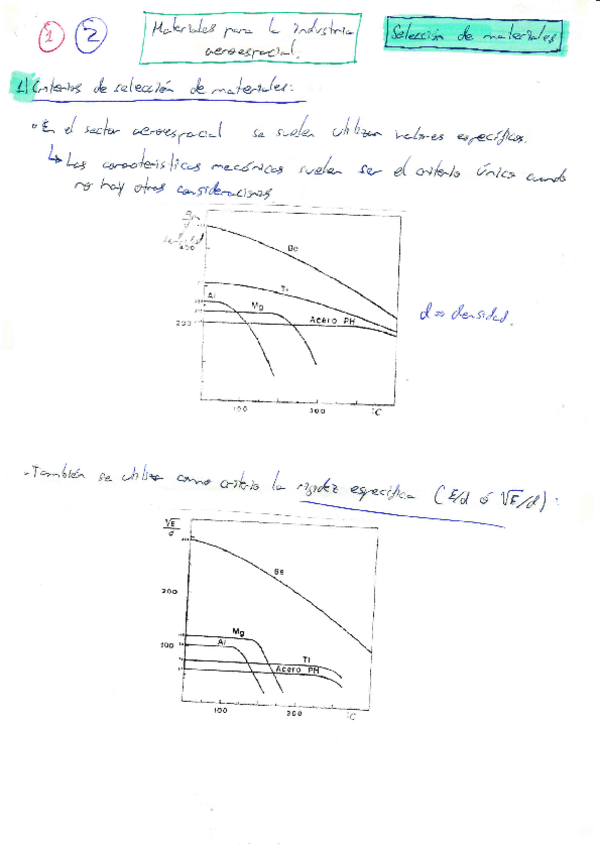 1 2
Materiales para la industria
aeroespacial.
Selección de materiales
1) Criterios de selección de materiales:
• En el sector aeroespacial se suelen utilizar valores específicos.
↳ Las características mecánicas suelen ser el criterio único cuando
no hay otras consideraciones
400
Be
Ti
Al
Mg
Acero PH
200
100 300 °C
d => densidad.
- También se utiliza como criterio la rigidez específica (E/d ó √E/d):
√E/d
Be
200
Mg
Al
100
Ti
Acero PH
100 300 °C